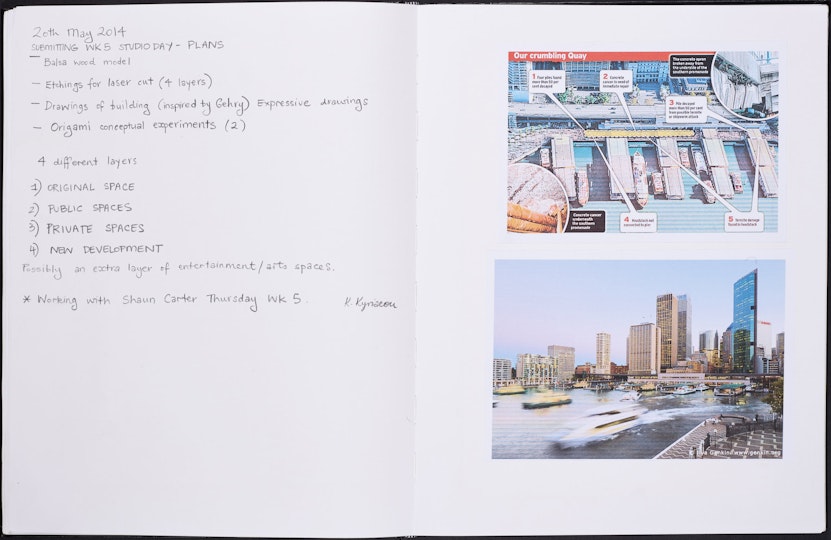 20th May 2014
SUBMITTING WK 5 STUDIO DAY - PLANS
- Balsa wood model
- Etchings for laser cut (4 layers)
- Drawings of building (inspired by Gehry) Expressive drawings
- Origami conceptual experiments (2)
4 different layers
1) ORIGINAL SPACE
2) PUBLIC SPACES
3) PRIVATE SPACES
4) NEW DEVELOPMENT
Possibly an extra layer of entertainment/arts spaces.
* Working with Shaun Carter Thursday WK 5.
Our crumbling Quay
The concrete apron
broken away from
the underside of the
southern promenade
1 Four piles found
more than 50 per
cent decayed
2 Concrete
cancer in need of
immediate repair
3 Pile decayed
more than 50 per cent
from possible termite
or shipworm attack
Concrete cancer
underneath
the southern
promenade
4 Headstock not
connected to pier
5 Termite damage
found to headstock
Genkin/www.genkin.org